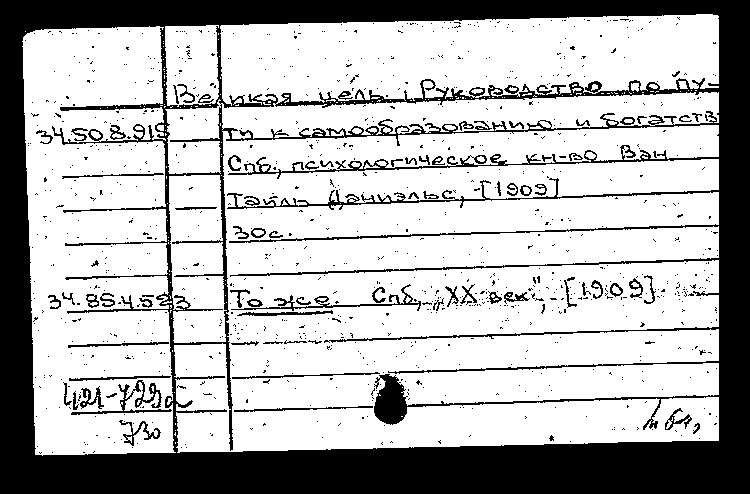 Великая цель. Руководство по пу-
34.50.8.915 ти к самообразованию и богатств
Спб., психологическое кн-во Ван
Тайль Даниэльс, [1909]
30с.
34.85.4.583 То же. Спб, „XX век", [1909].
421-729а
730